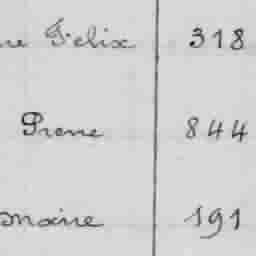 re Félix 318
Prone 844
maire 191